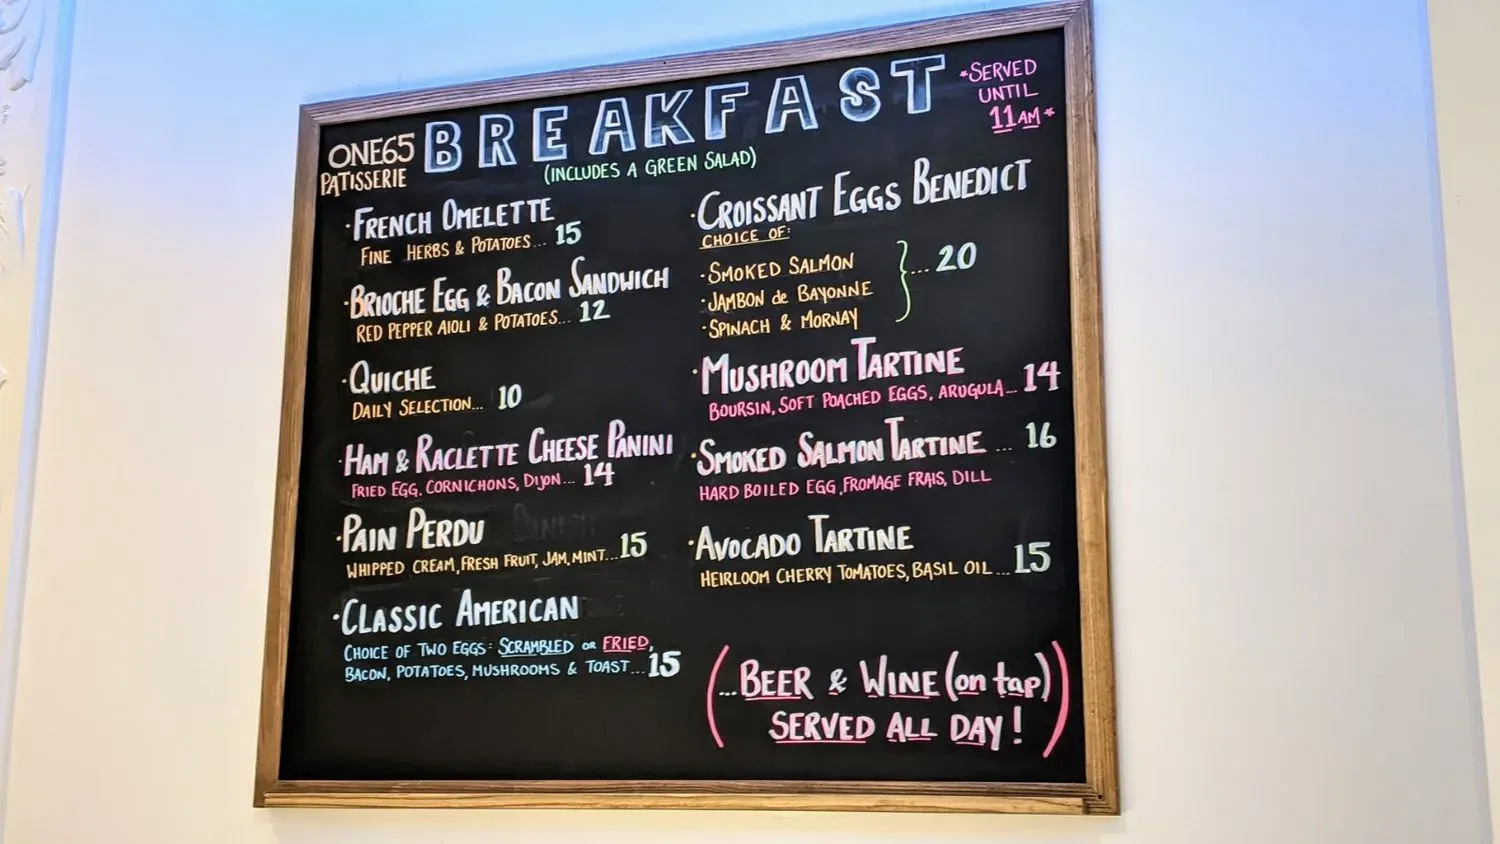 ONE65
PATISSERIE
BREAKFAST
(INCLUDES A GREEN SALAD)
*SERVED
UNTIL
11AM*
·FRENCH OMELETTE
FINE HERBS & POTATOES... 15
·BRIOCHE EGG & BACON SANDWICH
RED PEPPER AIOLI & POTATOES... 12
·QUICHE
DAILY SELECTION... 10
·HAM & RACLETTE CHEESE PANINI
FRIED EGG, CORNICHONS, DIJON... 14
·PAIN PERDU
WHIPPED CREAM, FRESH FRUIT, JAM, MINT... 15
·CLASSIC AMERICAN
CHOICE OF TWO EGGS: SCRAMBLED OR FRIED,
BACON, POTATOES, MUSHROOMS & TOAST... 15
·CROISSANT EGGS BENEDICT
CHOICE OF:
·SMOKED SALMON
·JAMBON de BAYONNE } ... 20
·SPINACH & MORNAY
·MUSHROOM TARTINE
BOURSIN, SOFT POACHED EGGS, ARUGULA... 14
·SMOKED SALMON TARTINE ... 16
HARD BOILED EGG, FROMAGE FRAIS, DILL
·AVOCADO TARTINE
HEIRLOOM CHERRY TOMATOES, BASIL OIL... 15
(...BEER & WINE (on tap)
SERVED ALL DAY!)